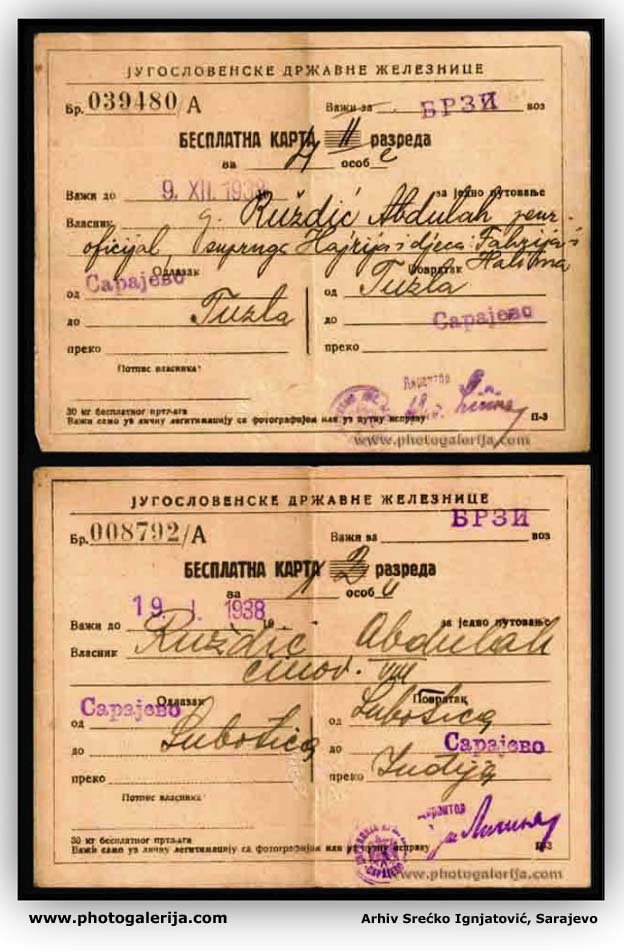 ЈУГОСЛОВЕНСКЕ ДРЖАВНЕ ЖЕЛЕЗНИЦЕ
Бр. 039480/А Важи за БРЗИ воз
БЕСПЛАТНА КАРТА II разреда
за 4 особе
Важи до 9. XII. 1938 за једно путовање
Власник g. Ruždić Abdulah penz.
oficijal, supruga Hajrija i djeca: Fahrija i
Halima
Одлазак Повратак
од Сарајево од Tuzla
до Tuzla до Сарајево
преко преко
Потпис власника
Директор
30 кг бесплатног пртљага
Важи само уз личну легитимацију са фотографијом или уз путну исправу П-3
www.photogalerija.com
ЈУГОСЛОВЕНСКЕ ДРЖАВНЕ ЖЕЛЕЗНИЦЕ
Бр. 008792/А Важи за БРЗИ воз
БЕСПЛАТНА КАРТА 2 разреда
за 1 особу
Важи до 19. I. 1938 19 за једно путовање
Власник Ruždić Abdulah
činov. VIII
Одлазак Повратак
од Сарајево од Subotica
до Subotica до Сарајево
преко преко Inđija
Потпис власника
Директор
САРАЈЕВО
30 кг бесплатног пртљага
Важи само уз личну легитимацију са фотографијом или уз путну исправу П-3
www.photogalerija.com
www.photogalerija.com Arhiv Srećko Ignjatović, Sarajevo